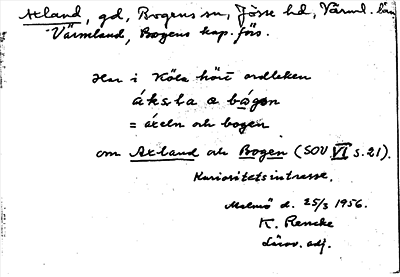 Axland, gd, Bogens sn, Jösse hd, Värml. län
Värmland, Bogens kap. förs.
Har i Köla hört ordleken
áksla o bágen
= áxeln och bogen
om Axland och Bogen (SOV VI s. 21).
Kuriositetsintresse.
Malmö d. 25/3 1956.
K. Rencke
Lärov. adj.